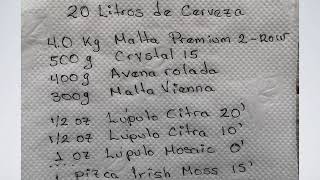 20 Litros de Cerveza
4.0 Kg Malta Premium 2-Row
500g Crystal 15
400g Avena rolada
300g Malta Vienna
1/2 oz Lúpulo Citra 20'
1/2 oz Lúpulo Citra 10'
1 oz Lúpulo Mosaic 0'
1 Pizca Irish Moss 15'